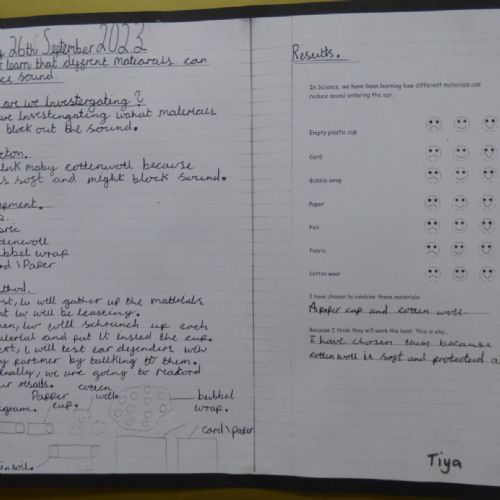 26th September 2023
learn that diffrent matiarials can
sound.
are we Investergating?
we Investengating what materials
block out the sound.
think maby cottenwoll because
is soft and might block sound.
bubbel wrap
Card \ Paper
we will gather up the matirials
we will be
we will schrunch up each
material and put it insied the cup.
I will test ear defenders with
my partner by tallking to them.
we are going to
our results.
cotten
Papper
woll
cup.
bubbel
wrap.
card \ paper
Results.
In Science, we have been learning how different materials can
reduce sound entering the ear.
Empty plastic cup
Card
Bubble wrap
Paper
Foil
Fabric
Cotton wool
I have chosen to combine these materials
A paper cup and cotten woll.
Because I think they will work the best. This is why...
I have chosen them because
cotten woll is soft and protected a
Tiya